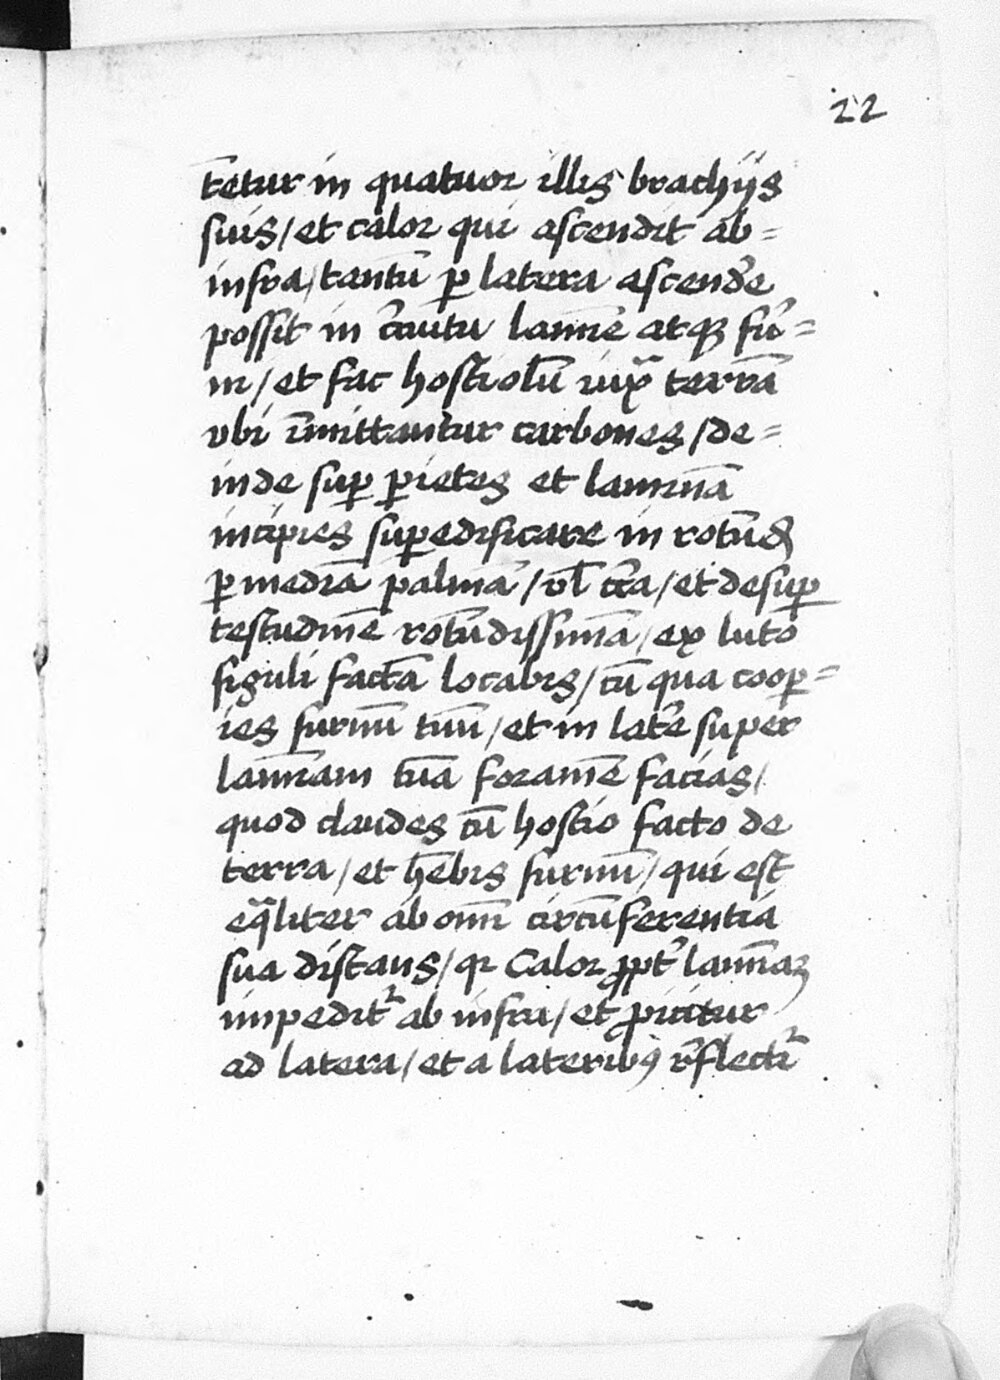 22
t̄etur in quatuor illis brachijs
suis / et calor qui ascendit ab=
infra / tantū ꝑ latera ascend̕e
possit in c̕cuitu lamīe atqꝫ fu̕=
ni / et fac hostiolū iuxᵃ terrā
vbi īmittantur carbones / de=
inde suꝑ ꝑietes et laminā
incipies suꝑedificare in rotūdū
ꝑ mediā palmā / vl̄ cc̕a / et desuꝑ
testudinē rotūdissimā / ex luto
figuli factā locabis / cū qua cooꝑ=
ies furnū tuū / et in lat̕e super
lam̄am tuā foramē facias /
quod claudes cū hostio facto de
terra / et h̄ebis furnū / qui est
eq̄liter ab omī circūferentia
sua distans / qꝛ Calor ꝓpt̕ lam̄aꝫ
impeditᵘ̕ ab infra / et ꝓicitur
ad latera / et a lateribꝰ r̕flectiᵘ̕